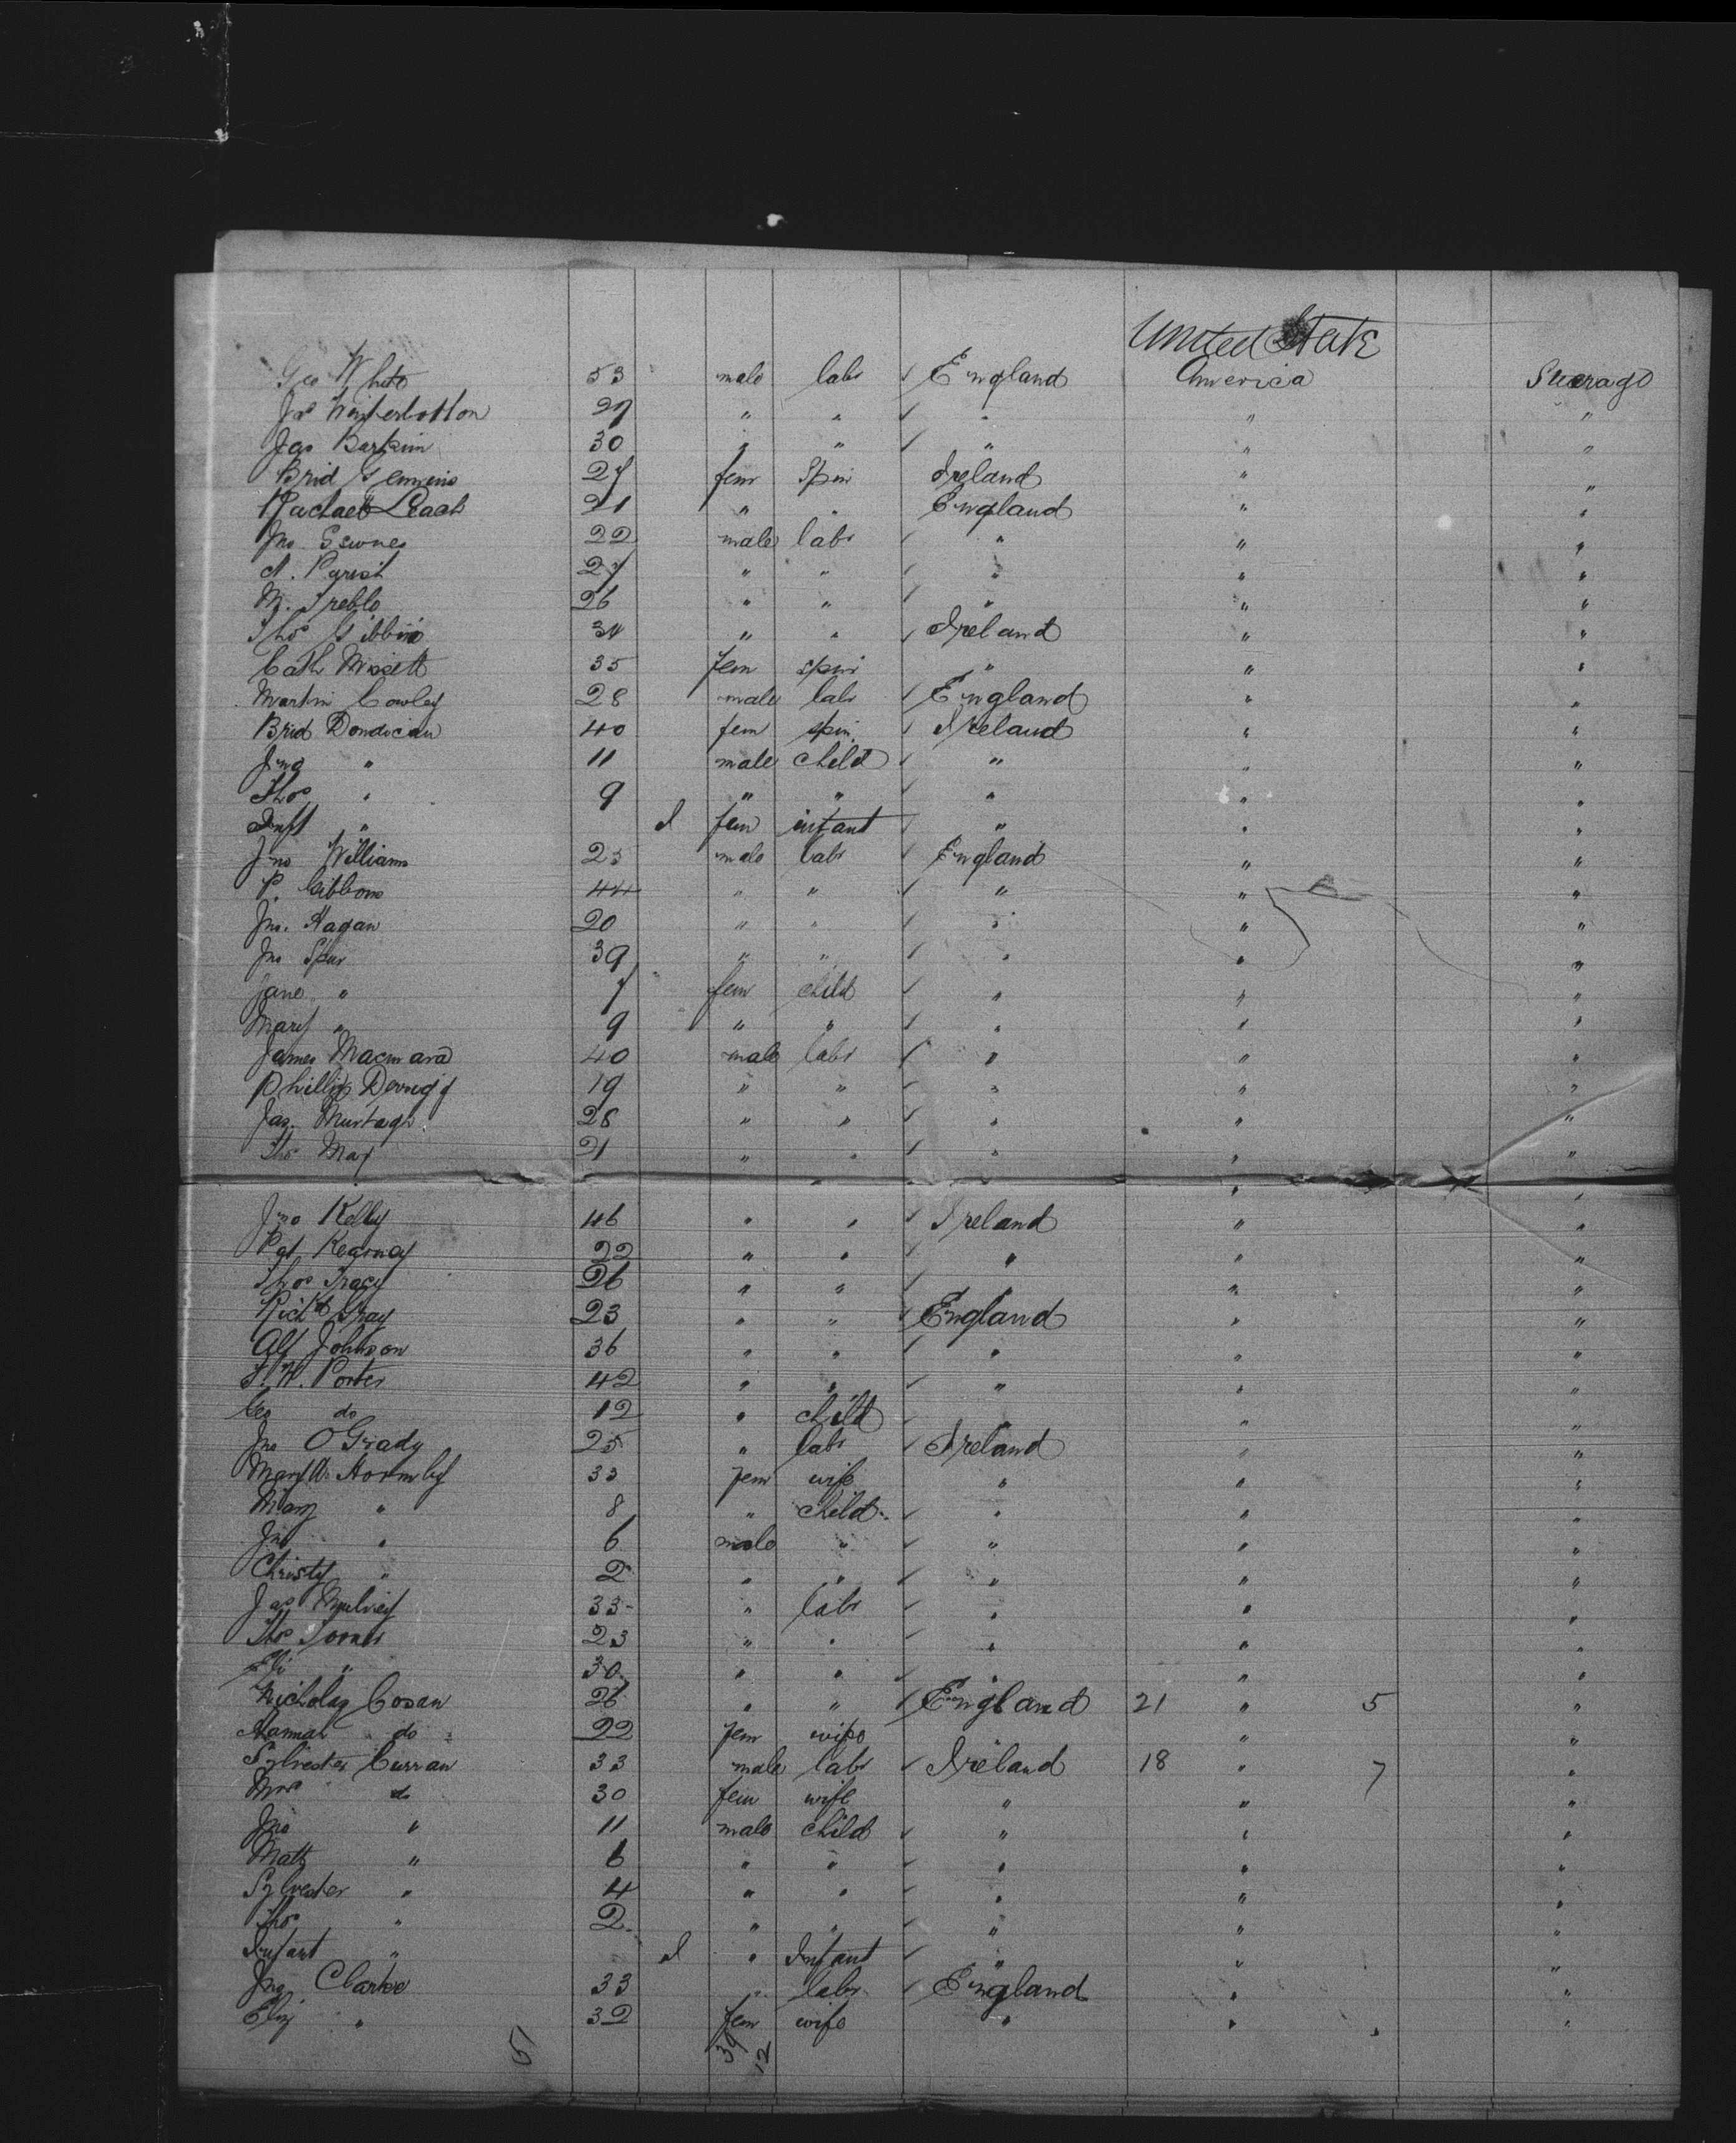 United State
Geo White 53 male labr ✓ England America Steerage
Js Winterbotton 27 " " ✓ " " "
Jas Barkin 30 " " ✓ " " "
Brid 27 fem Spin Ireland " "
Rachael Leach 21 " " England " "
Jno 22 male labr ✓ " " "
A. Parish 27 " " ✓ " " "
M. Treblo 26 " " ✓ " " "
Thos Gibbins 34 " " ✓ Ireland " "
Cath 35 fem spin " " "
Martin Cowley 28 male labr ✓ England " "
Brid Dondican 40 fem spin ✓ Ireland " "
Jno " 11 male child ✓ " " "
Thos " 9 " " ✓ " " "
Inft " I fem infant ✓ " " "
Jno Williams 25 male labr ✓ England " "
P. Gibbons 44 " " ✓ " " "
Jno. Hagan 20 " " ✓ " " "
Jno Spur 39 " " ✓ " " "
Jane " 7 fem child ✓ " " "
Mary " 9 " " ✓ " " "
James Macnara 40 male labr ✓ " " "
Phillip 19 " " ✓ " " "
Jas. Murtagh 28 " " ✓ " " "
Thos May 21 " " ✓ " " "
" " " "
Jno Kelly 46 " " ✓ Ireland " "
Pat Kearney 22 " " ✓ " " "
Thos Tracy 26 " " ✓ " " "
Richd Gray 23 " " ✓ England " "
Alf Johnson 36 " " ✓ " " "
J. W. Porter 42 " " ✓ " " "
Geo do 12 " child ✓ " " "
Jno O Grady 25 " labr ✓ Ireland " "
Mary A. Hormby 33 fem wife " " "
Mary " 8 " child ✓ " " "
Jno " 6 male " ✓ " " "
Christy " 2 " " ✓ " " "
Jas Mulvey 33 " labr ✓ " " "
Thos 23 " " ✓ " " "
" 30 " " ✓ " " "
Nicholas Cosan 26 " " ✓ England 21 " 5 "
Hannah do 22 fem wife " "
Sylvester Curran 33 male labr ✓ Ireland 18 " 7 "
Mrs do 30 fem wife " " "
Jno " 11 male child ✓ " " "
Matt " 6 " " ✓ " " "
Sylvester " 4 " " ✓ " " "
Thos " 2 " " ✓ " " "
Infant " I " Infant ✓ " " "
Jno Clarke 33 " labr ✓ England " "
Eliz " 32 fem wife " " "
51 39 12